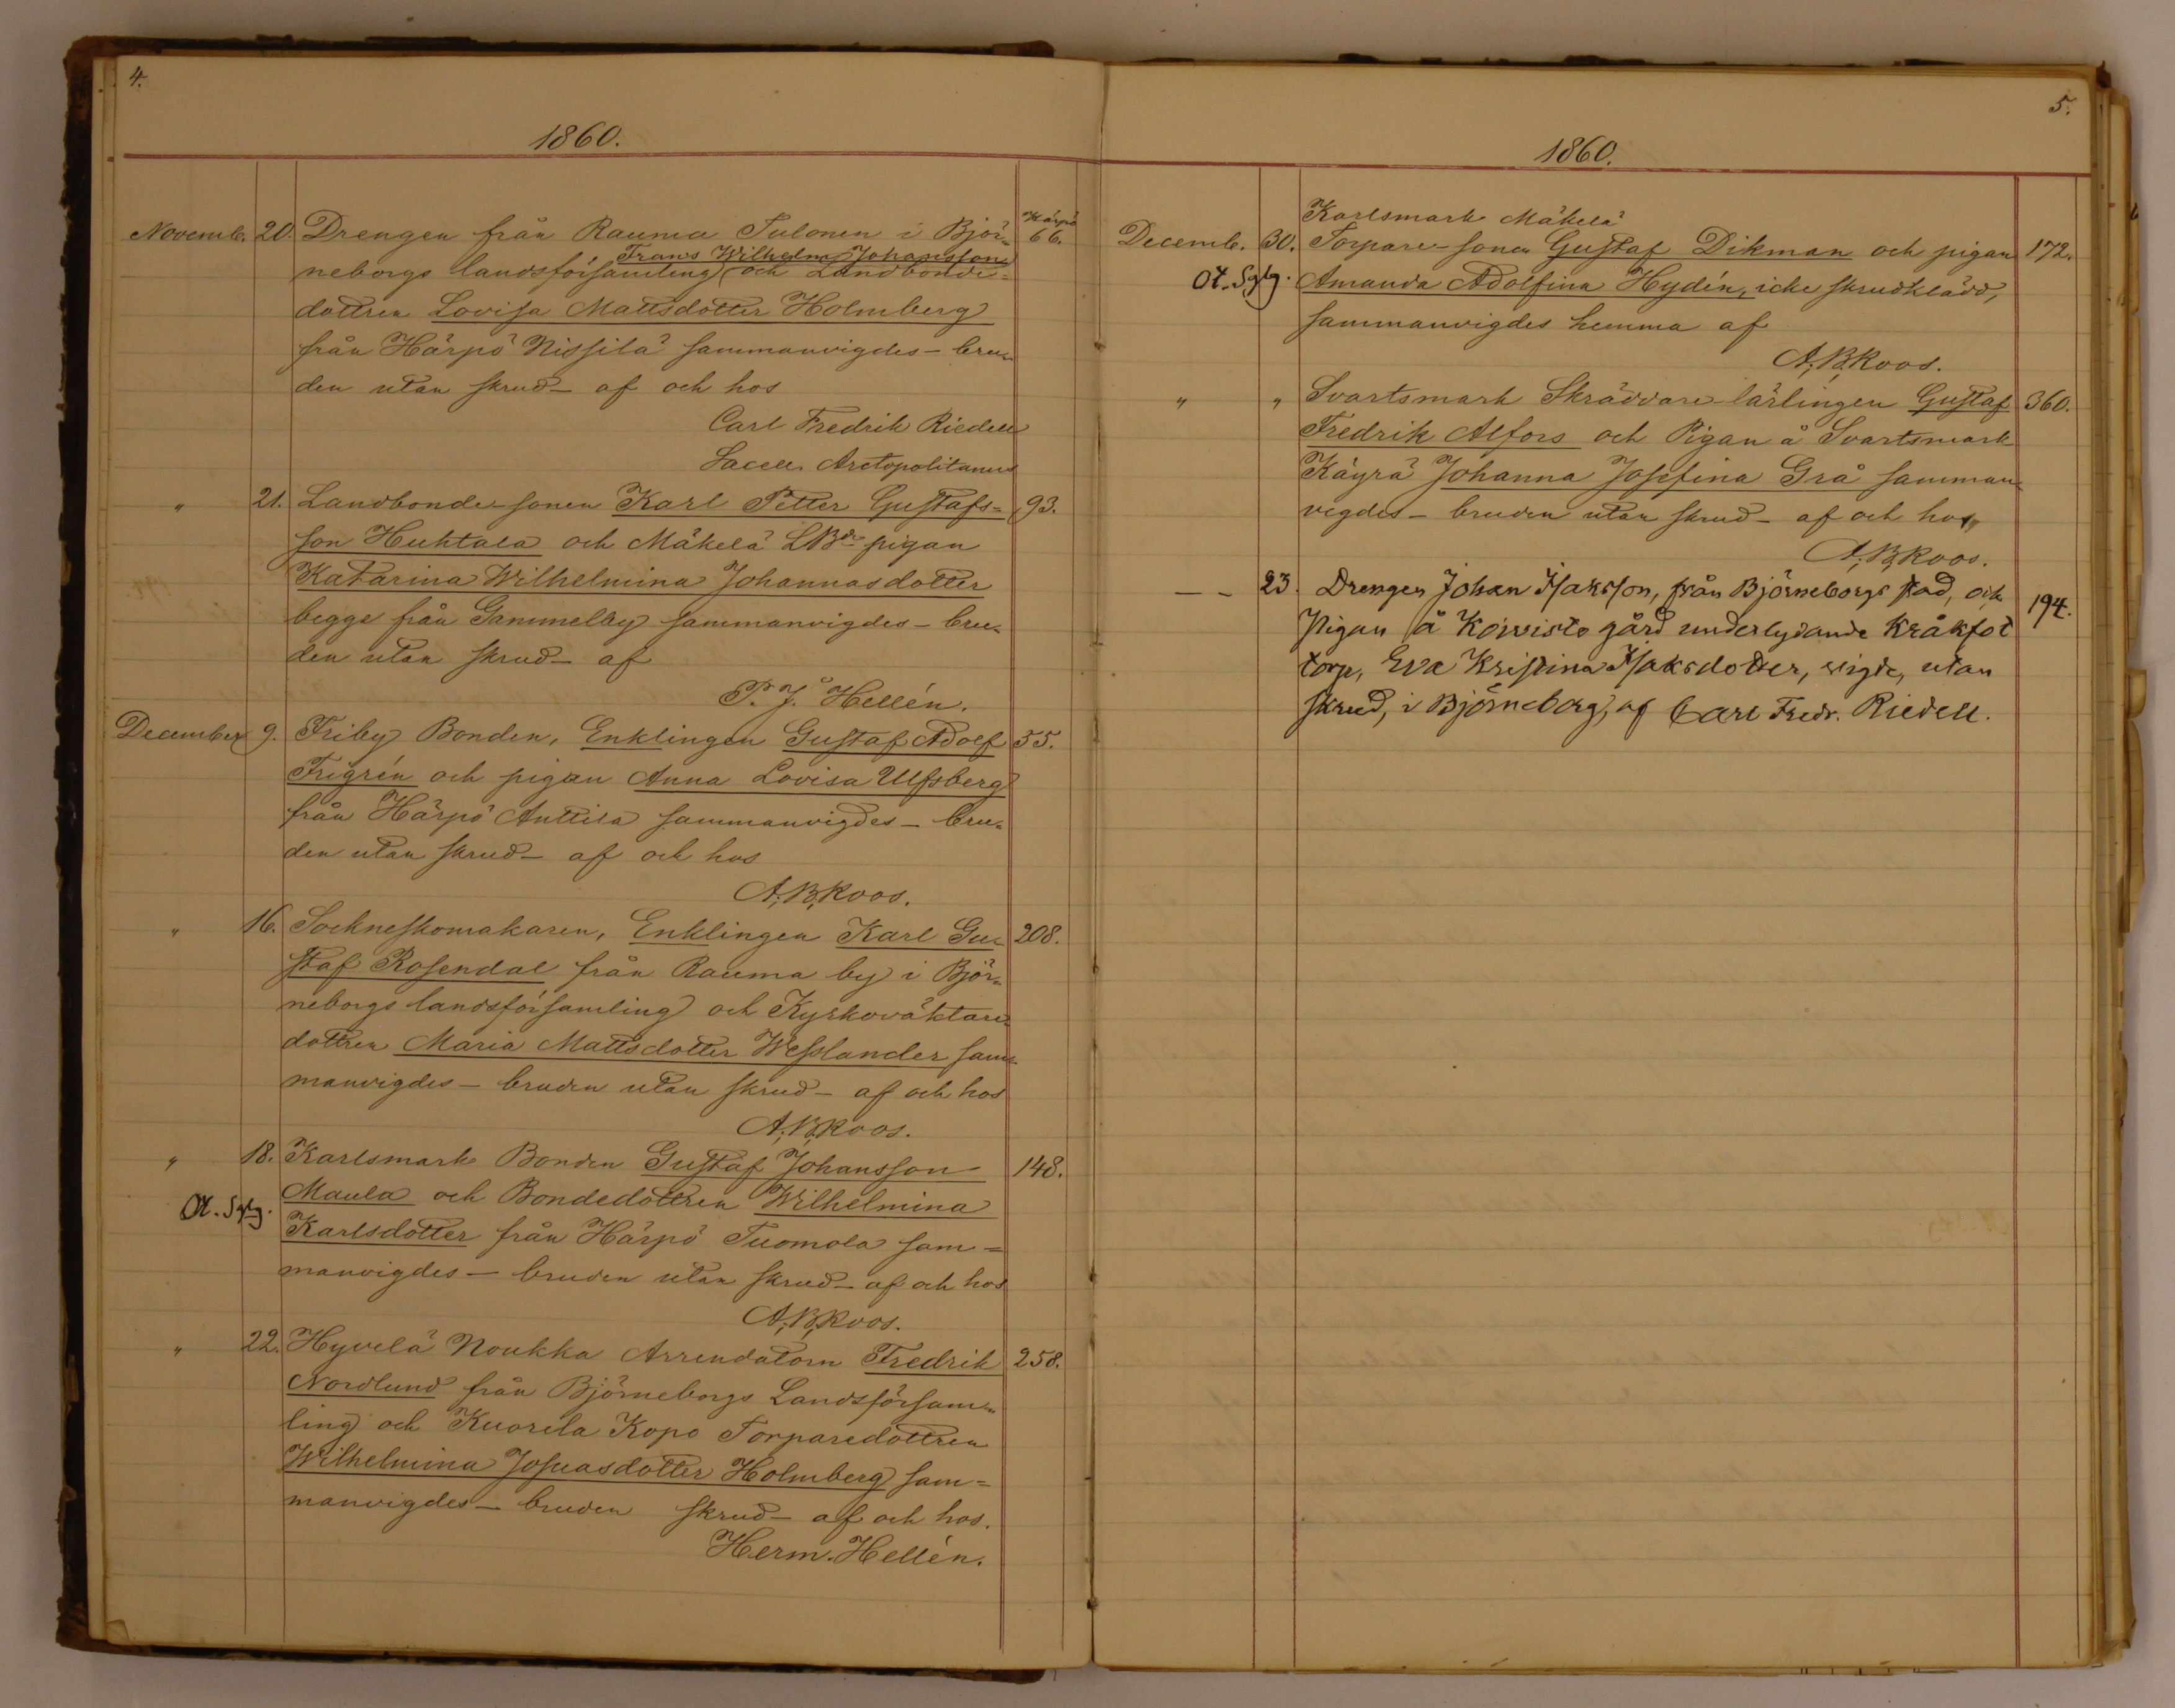 4.
1860.
Härpö
Novemb. 20. Drengen från Rauma Tulonen i Björ- 66.
Frans Wilhelm Johansson
neborgs landsförsamling och Landbonde-
dottren Lovisa Mattsdotter Holmberg
från Härpö Nissilä sammanvigdes - bru-
den utan skrud - af och hos
Carl Fredrik Riedell
Sacell. Arctopolitanus
" 21. Landbonde-sonen Karl Petter Gustafs- 93.
son Huhtala och Mäkelä LBde pigan
Katarina Wilhelmina Johannasdotter
begge från Gammelby sammanvigdes - bru-
den utan skrud - af
P. J. Hellén.
December 9. Friby Bonden, Enklingen Gustaf Adolf 55.
Frigrén och pigan Anna Lovisa Ulfsberg
från Härpö Anttila sammanvigdes - bru-
den utan skrud - af och hos
A. B. Roos.
" 16. Sockneskomakaren, Enklingen Karl Gu- 208.
staf Rosendal från Rauma by i Björ-
neborgs landsförsamling och Kyrkoväktare-
dottren Maria Mattsdotter Wesslander sam-
manvigdes - bruden utan skrud - af och hos
A. B. Roos.
" 18. Karlsmark Bonden Gustaf Johansson 148.
Maula och Bondedottren Wilhelmina
Ot. Sglg.
Karlsdotter från Härpö Tuomola sam-
manvigdes - bruden utan skrud - af och hos
A. B. Roos.
" 22. Hyvelä Noukka Arrendatorn Fredrik 258.
Nordlund från Björneborgs Landsförsam-
ling och Kuorila Kopo Torparedottren
Wilhelmina Josuasdotter Holmberg sam-
manvigdes - bruden skrud - af och hos.
Herm. Hellén.
5.
1860.
Karlsmark Mäkelä
Decemb. 30. Torpare-sonen Gustaf Dikman och pigan 172.
Ot. Sglg. Amanda Adolfina Hydén, icke skrudklädd,
sammanvigdes hemma af
A. B. Roos.
" " Svartsmark Skräddare-lärlingen Gustaf 360.
Fredrik Alfors och Pigan å Svartsmark
Käyrä Johanna Josefina Grå samman-
vigdes - bruden utan skrud - af och hos
A. B. Roos.
- - 23. Drengen Johan Isaksson, från Björneborgs stad, och 194.
Pigan å Koivisto gård underlydande Kråkfot
torp, Eva Kristina Isaksdotter, vigde, utan
skrud, i Björneborg, af Carl Fredr. Riedell.